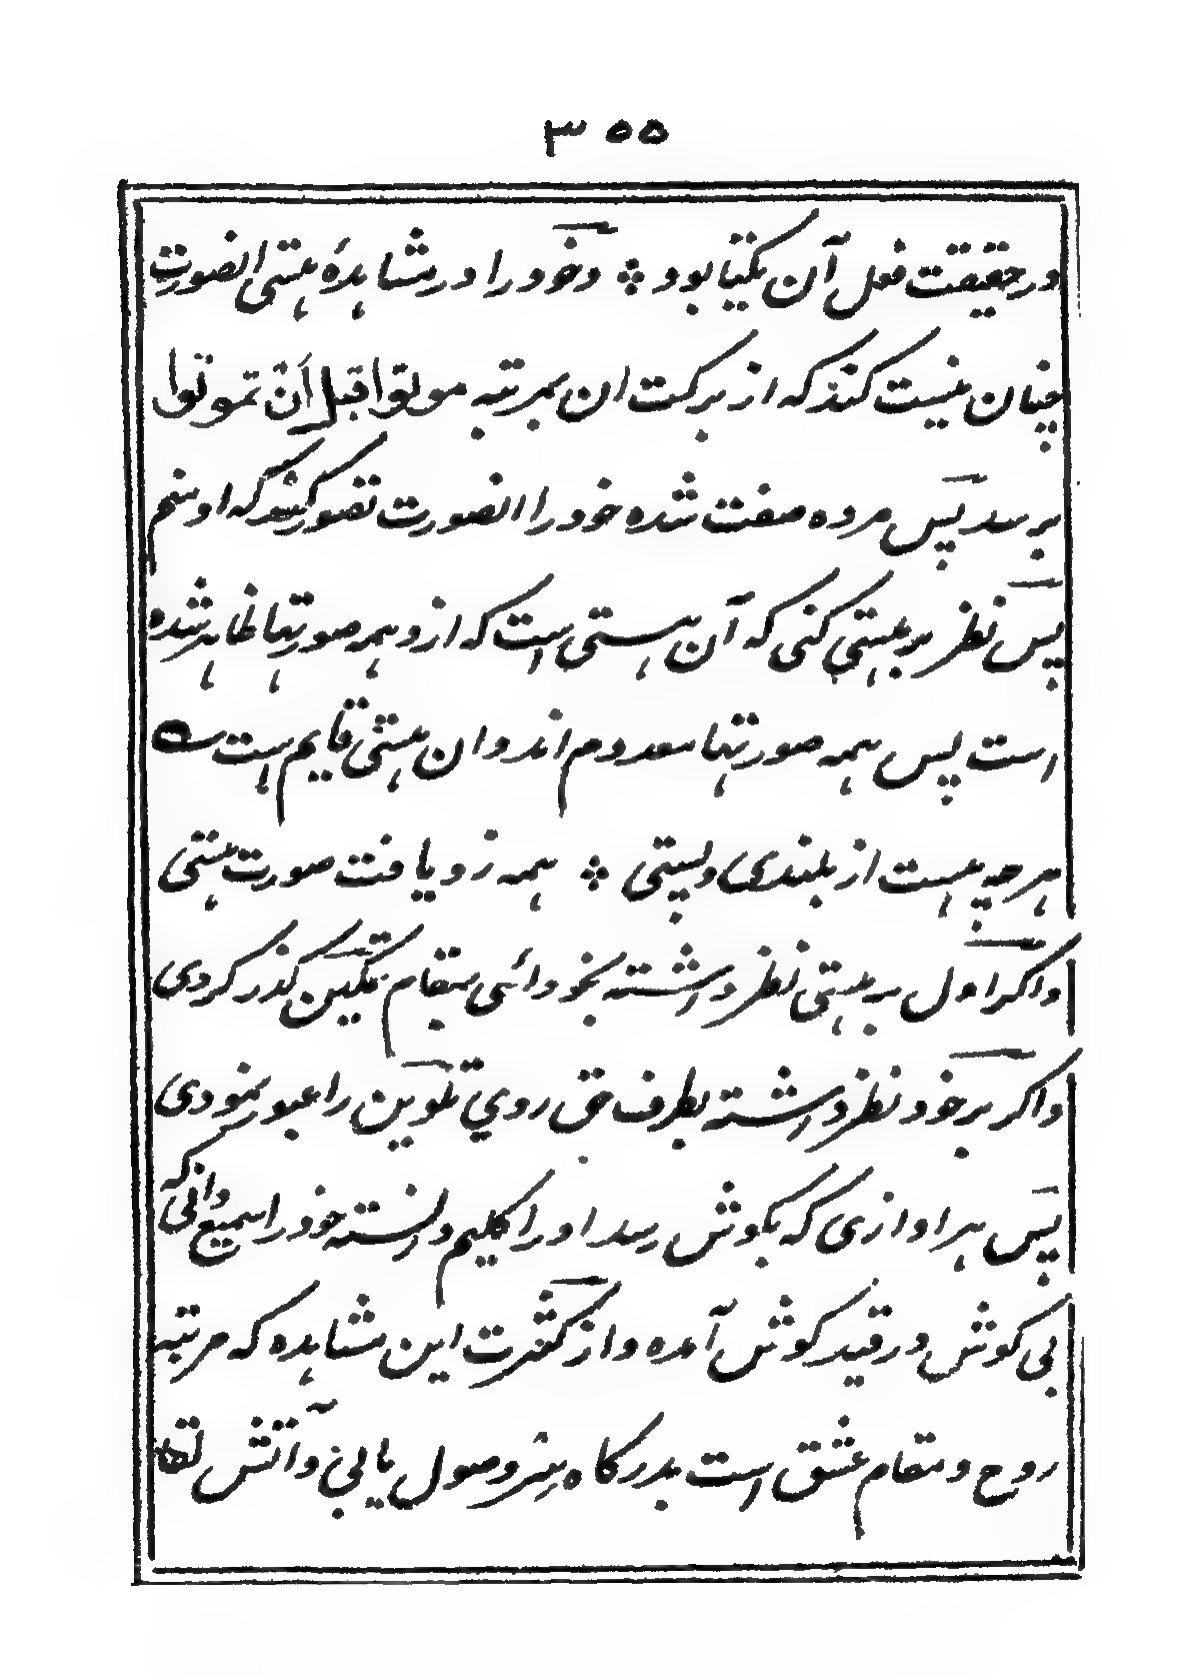 ۳۵۵
در حقیقت فعل آن یکتا بود ؞ و خود را در مشاهدهٔ هستی انصورت
چنان نیست کند که از برکت ان بمرتبه موتوا قبل اَنْ تموتوا
برسد پس مرده صفت شده خود را انصورت تصور کند که او منم
پس نظر بر هستی کنی که آن هستی است که ازو همه صورتها ظاهر شده
است پس همه صورتها معدوم اند و ان هستی قایم است
هر چه هست از بلندی و پستی ؞ همه زو یافت صورت هستی
واکر اول بر هستی نظر داشته بخود ائی بمقام تمکین کذر کردی
واکر بر خود نظر داشته بطرف حق روی تلوین را عبور نمودی
پس هر اوازی که بکوش رسد او را کلیم دانسته خود را سمیع دانی که
بی کوش در قید کوش آمده و از کثرت این مشاهده که مرتبه
روح و مقام عشق است بدرکاه وصول یابی و آتش لقا